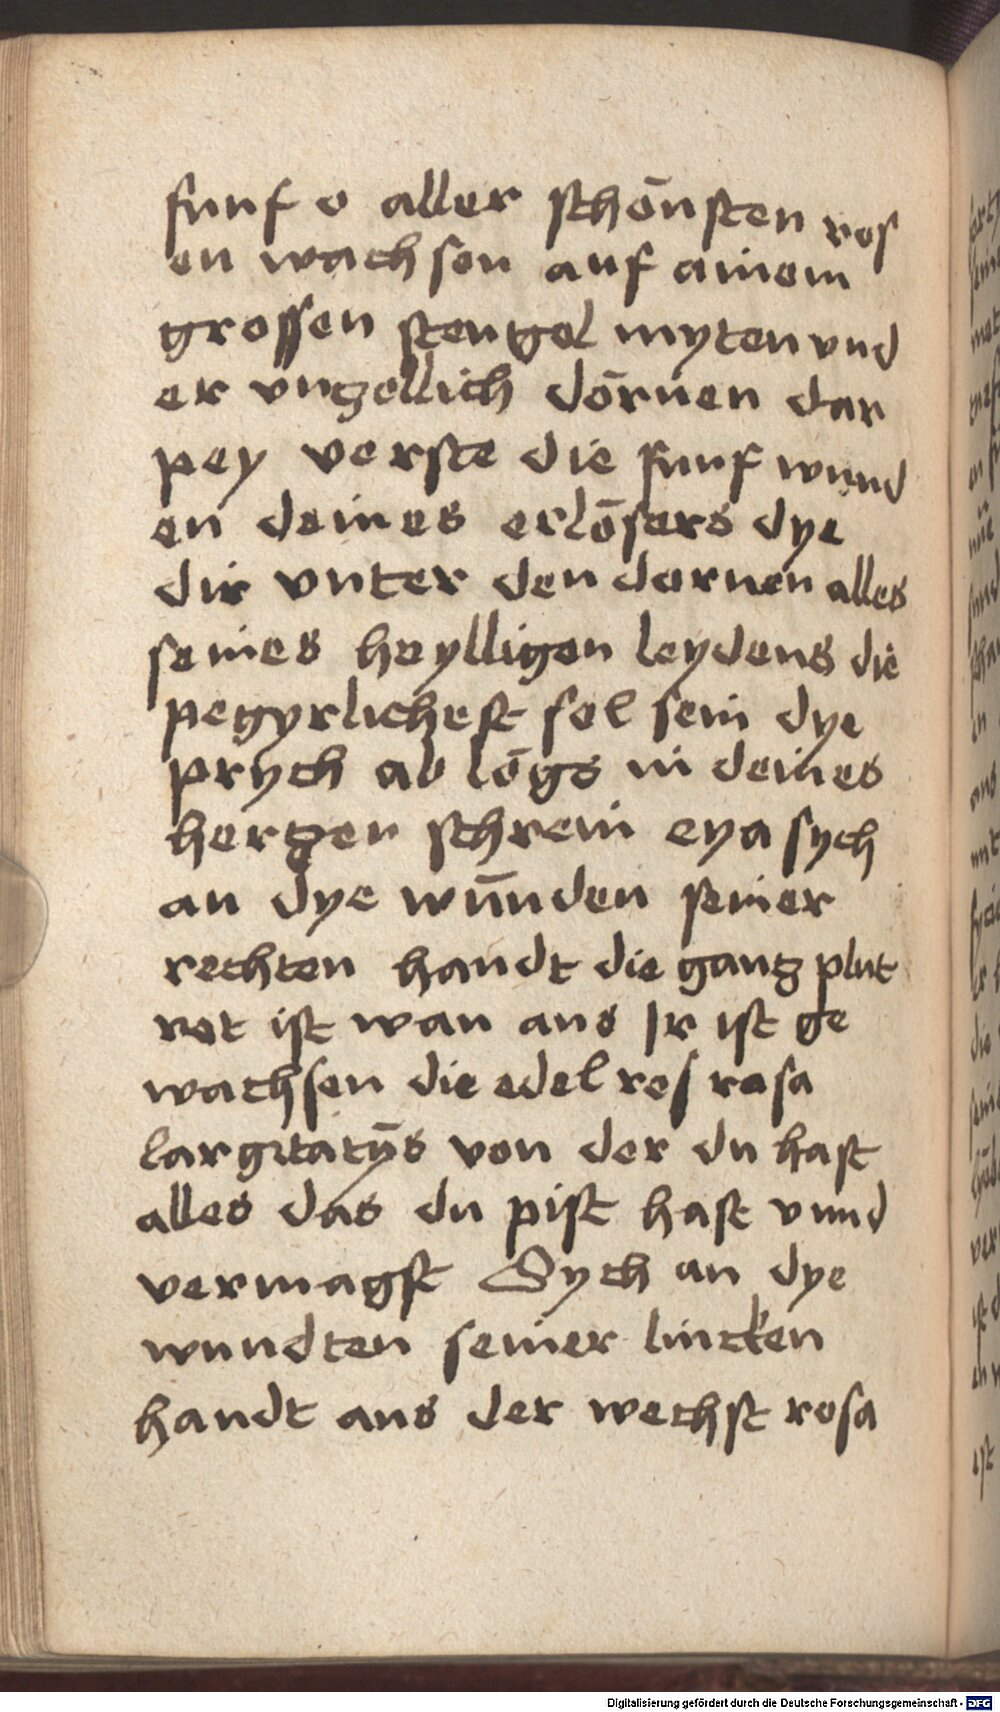 funf o aller schōnsten ros
en wachsen auf ainem
grossen stengel myten vnd
er vnzellich dōrnen dar
pey verste die funf wund
en deines erlōsers dye
dir vnter den dornen alles
seines heylligen leydens die
pegyrlichest sol sein dye
prych ab lōgs in deines
herzen schrein eya sych
an dye wūnden seiner
rechten handt die gantz plut
rot ist wan aus Ir ist ge
wachsen die edel ros rosa
largitatȳs von der du hast
alles das du pist hast vnnd
vermagst Sych an dye
wundten seiner lincken
handt aus der wechst rosa
Digitalisierung gefördert durch die Deutsche Forschungsgemeinschaft - DFG